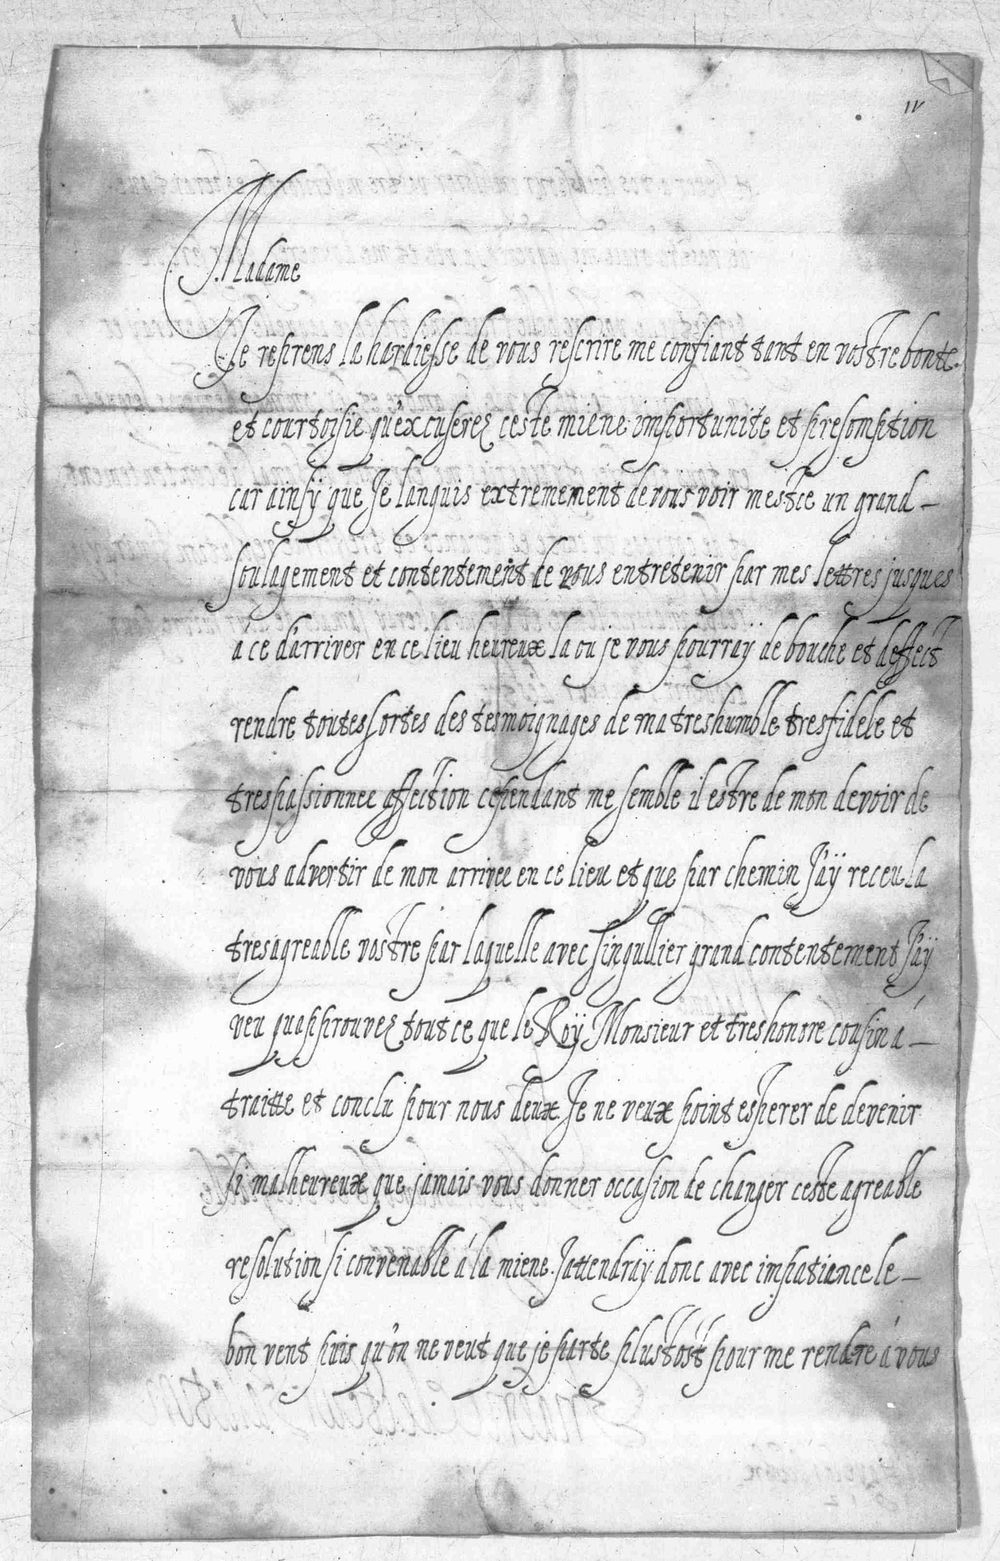 11
Madame
Je reprens la hardiesse de vous rescrire me confiant tant en vostre bonte
et courtoisie qu'excuserez ceste miene importunite et presomption
car ainsy que Je languis extremement de vous voir mestce un grand –
soulagement et contentement de vous entretenir par mes lettres jusques
a ce d'arriver en ce lieu heureux la ou je vous pourraÿ de bouche et deffect
rendre toutes sortes des tesmoignages de ma treshumble tresfidele et
trespassionnee affection cependant me semble il estre de mon devoir de
vous advertir de mon arrivee en ce lieu et que par chemin J'aÿ receu la
tresagreable vostre par laquelle avec singullier grand contentement J'aÿ
veu qu'approuvez tout ce que le Roÿ Monsieur et treshonore cousin á –
traitte et conclu pour nous deux Je ne veux point esperer de devenir
si malheureux que jamais vous donner occasion de changer ceste agreable
resolution si convenable á la miene. J'attendraÿ donc avec impatiance le –
bon vent puis qu'on ne veut que je parte plustost pour me rendre á vous